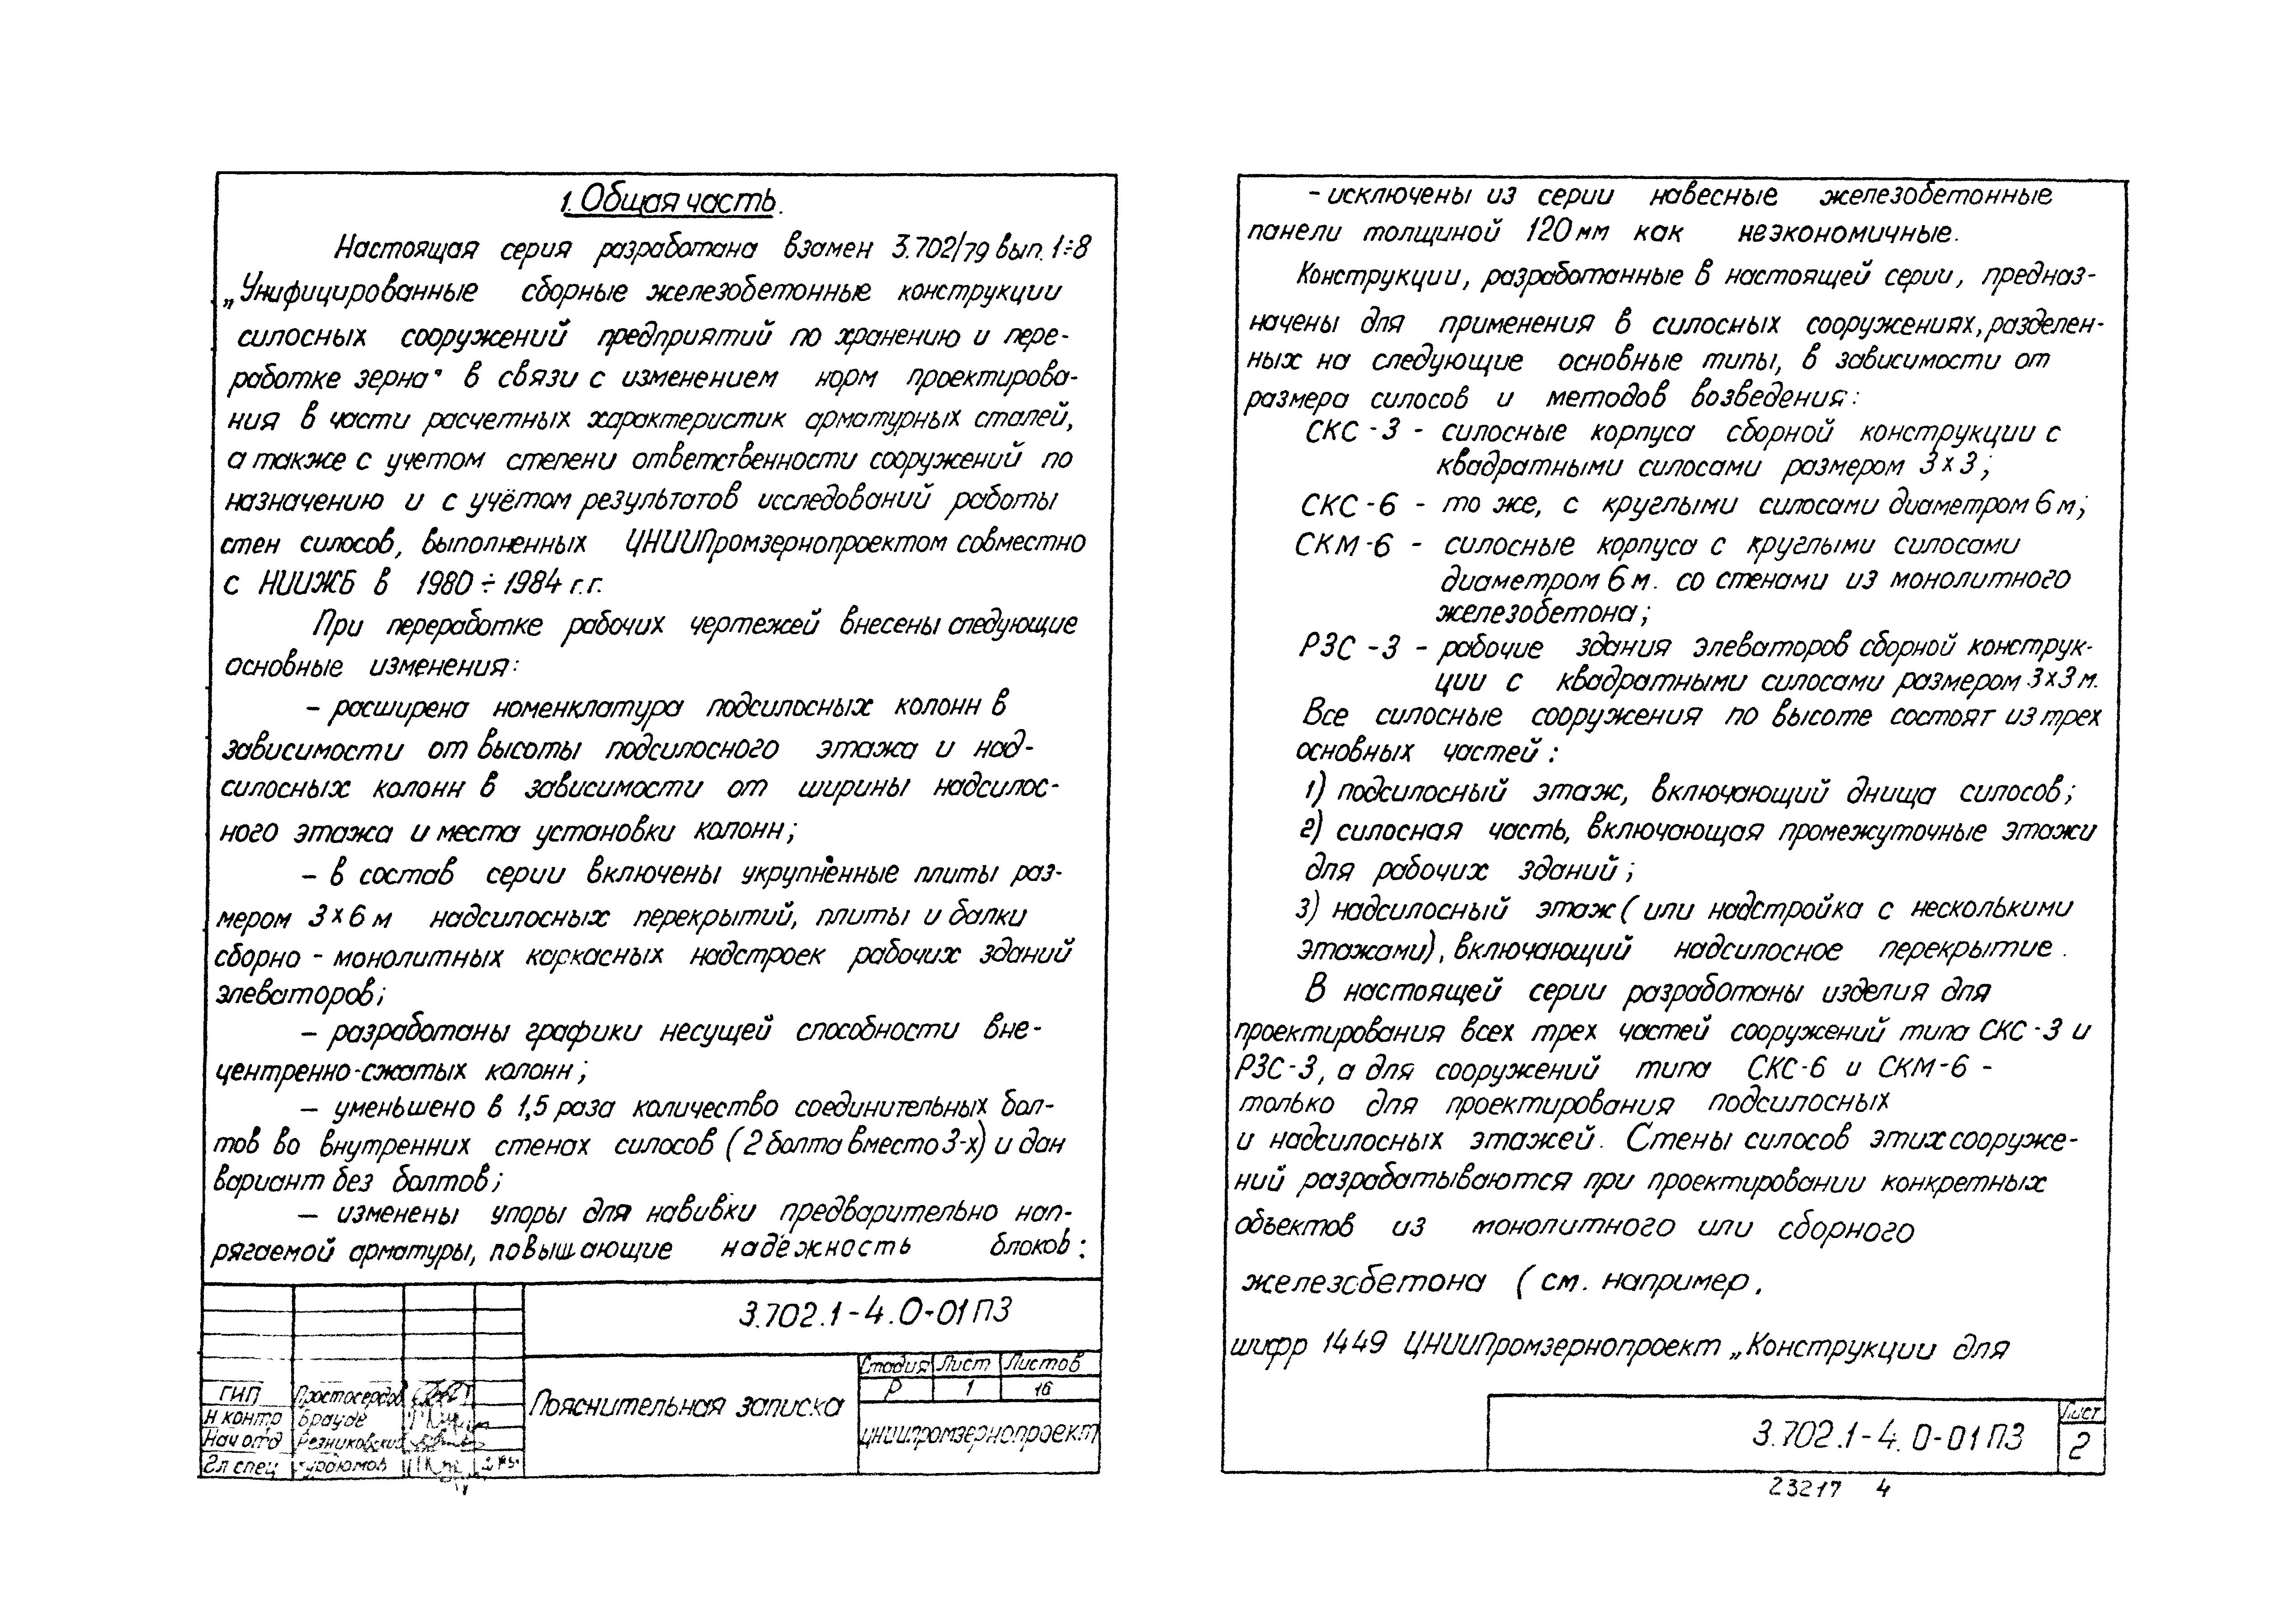 1. Общая часть.
Настоящая серия разработана взамен 3.702/79 вып. 1÷8
„Унифицированные сборные железобетонные конструкции
силосных сооружений предприятий по хранению и пере-
работке зерна" в связи с изменением норм проектирова-
ния в части расчетных характеристик арматурных сталей,
а также с учетом степени ответственности сооружений по
назначению и с учётом результатов исследований работы
стен силосов, выполненных ЦНИИПромзернопроектом совместно
с НИИЖБ в 1980 ÷ 1984 г.г.
При переработке рабочих чертежей внесены следующие
основные изменения:
– расширена номенклатура подсилосных колонн в
зависимости от высоты подсилосного этажа и над-
силосных колонн в зависимости от ширины надсилос-
ного этажа и места установки колонн;
– в состав серии включены укрупнённые плиты раз-
мером 3×6 м надсилосных перекрытий, плиты и балки
сборно - монолитных каркасных надстроек рабочих зданий
элеваторов;
– разработаны графики несущей способности вне-
центренно-сжатых колонн;
– уменьшено в 1,5 раза количество соединительных бол-
тов во внутренних стенах силосов (2 болта вместо 3-х) и дан
вариант без болтов;
– изменены упоры для навивки предварительно нап-
рягаемой арматуры, повышающие надёжность блоков:
3.702.1-4.0-01ПЗ
Стадия Лист Листов
Р 1 16
Пояснительная записка
ЦНИИпромзернопроект
ГИП Простосердов
Н контр Брауде
Нач отд Резниковский
Гл спец
– исключены из серии навесные железобетонные
панели толщиной 120 мм как неэкономичные.
Конструкции, разработанные в настоящей серии, предназ-
начены для применения в силосных сооружениях, разделен-
ных на следующие основные типы, в зависимости от
размера силосов и методов возведения:
СКС-3 - силосные корпуса сборной конструкции с
квадратными силосами размером 3×3;
СКС-6 - то же, с круглыми силосами диаметром 6 м;
СКМ-6 - силосные корпуса с круглыми силосами
диаметром 6 м. со стенами из монолитного
железобетона;
РЗС-3 - рабочие здания элеваторов сборной конструк-
ции с квадратными силосами размером 3×3 м.
Все силосные сооружения по высоте состоят из трех
основных частей:
1) подсилосный этаж, включающий днища силосов;
2) силосная часть, включающая промежуточные этажи
для рабочих зданий;
3) надсилосный этаж (или надстройка с несколькими
этажами), включающий надсилосное перекрытие.
В настоящей серии разработаны изделия для
проектирования всех трех частей сооружений типа СКС-3 и
РЗС-3, а для сооружений типа СКС-6 и СКМ-6 -
только для проектирования подсилосных
и надсилосных этажей. Стены силосов этих сооруже-
ний разрабатываются при проектировании конкретных
объектов из монолитного или сборного
железобетона (см. например,
шифр 1449 ЦНИИПромзернопроект „Конструкции для
3.702.1-4.0-01ПЗ
Лист
2
23217 4